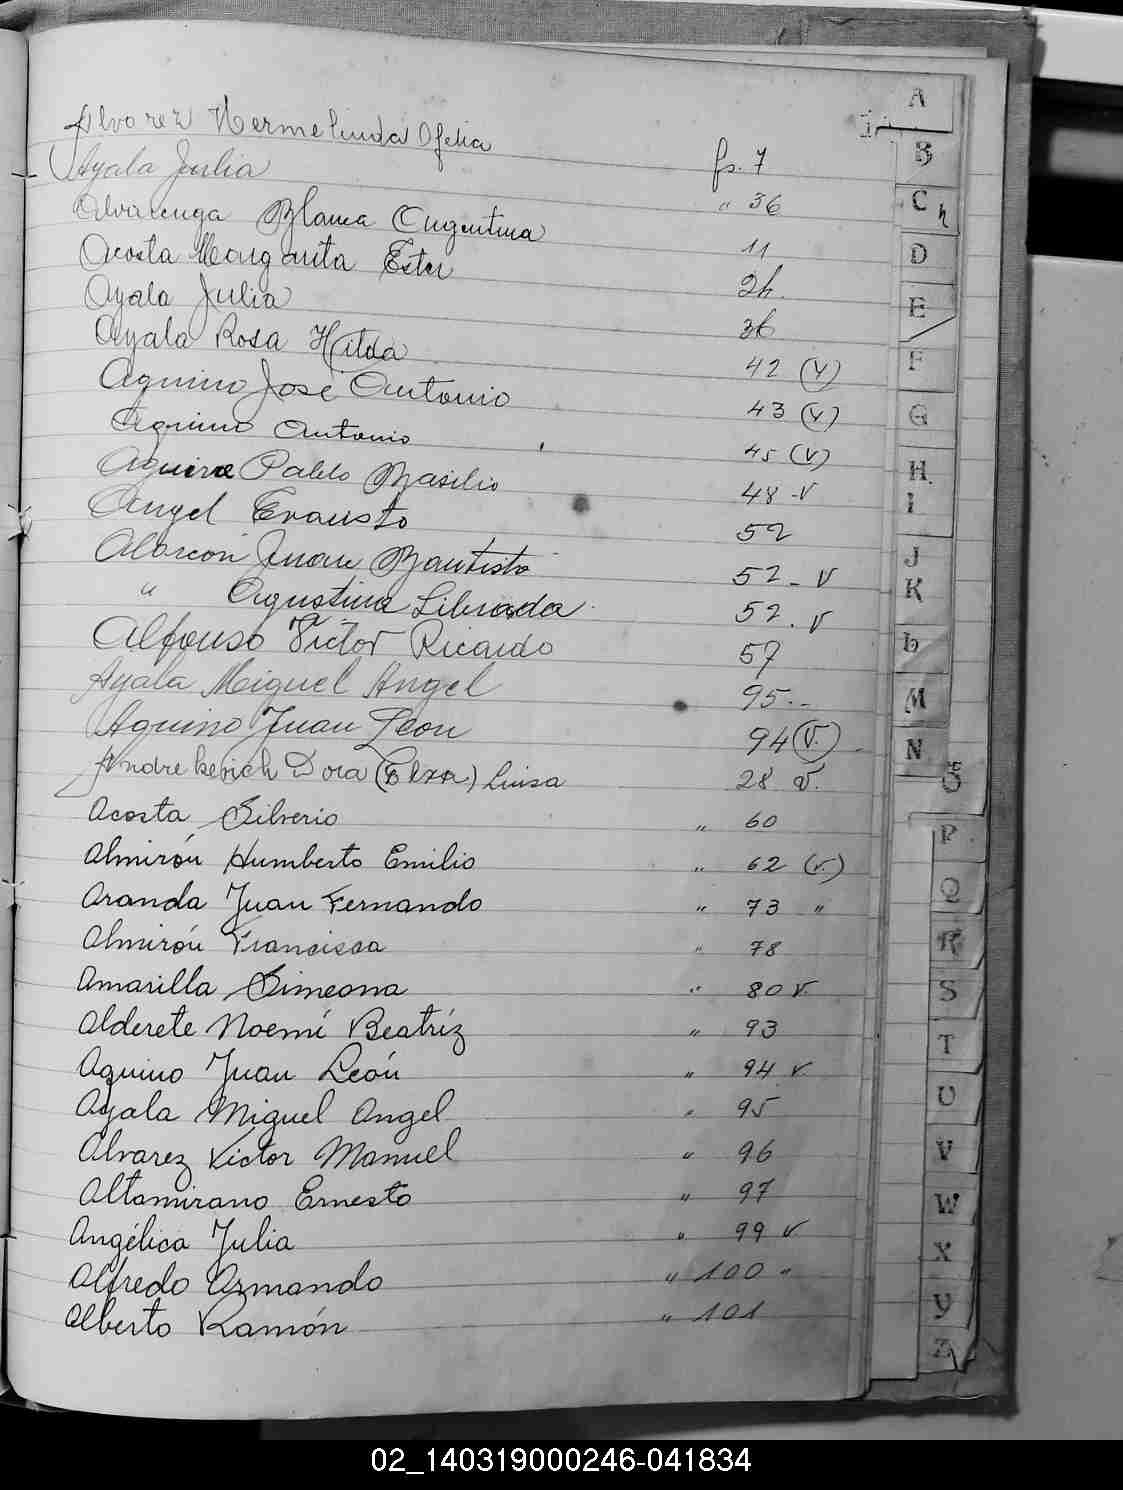 Alvarez Hermelinda Ofelia fs. 7
Ayala Julia " 36
Alvarenga Blanca Argentina 11
Acosta Margarita Ester 26
Ayala Julia 36
Ayala Rosa Hilda 42 (v)
Aquino José Antonio 43 (v)
Aquino Antonio 45 (v)
Aguirre Pablo Basilio 48 - v
Angel Erausto 52
Alarcón Juan Bautista 52 - v
" Agustina Librada 52. v
Alfonso Victor Ricardo 57
Ayala Miguel Angel 95 --
Aquino Juan Leon 94 (v.)
Andrekevich Dora (Elxa) Luisa 28 v.
Acosta Silverio " 60
Almirón Humberto Emilio " 62 (v.)
Aranda Juan Fernando " 73 "
Almirón Francisca " 78
Amarilla Simeona " 80 v.
Alderete Noemí Beatríz " 93
Aquino Juan León " 94 v
Ayala Miguel Angel " 95
Alvarez Victor Manuel " 96
Altamirano Ernesto " 97
Angélica Julia " 99 v
Alfredo Armando " 100 "
Alberto Ramón " 101
A
B
Ch
D
E
F
G
H
I
J
K
L
M
N
O
P
Q
R
S
T
U
V
W
X
Y
Z
02_140319000246-041834